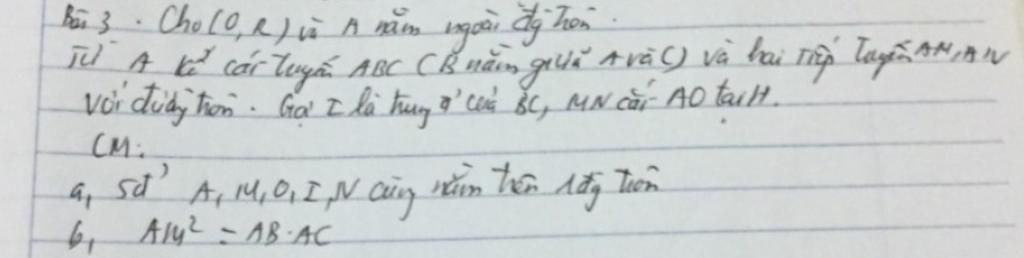 Bài 3. Cho (O,R) và A nằm ngoài đg tròn.
Từ A kẻ cát tuyến ABC (B nằm giữa A và C) và hai tiếp tuyến AM, AN
với đường tròn. Gọi I là trung đ' của BC, MN cắt AO tại H.
CM:
a, 5đ' A, M, O, I, N cùng nằm trên 1 đg tròn
b, AM² = AB.AC